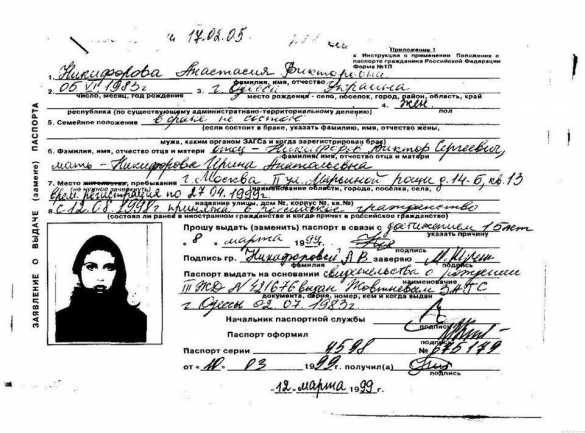 17.02.05
Приложение 1
к Инструкции о применении Положения о
паспорте гражданина Российской Федерации
Форма №1П
ЗАЯВЛЕНИЕ О ВЫДАЧЕ (замене) ПАСПОРТА
1. Никифорова Анастасия Викторовна
фамилия, имя, отчество
2. 05 VII 1983г. 3. г. Одесса Украина
число, месяц, год рождения место рождения - село, поселок, город, район, область, край
4. жен
республика (по существующему административно-территориальному делению) пол
5. Семейное положение в браке не состою
(если состоит в браке, указать фамилию, имя, отчество жены,
мужа, каким органом ЗАГСа и когда зарегистрирован брак)
6. Фамилия, имя, отчество отца и матери отец - Виктор Сергеевич,
фамилия, имя, отчество отца и матери
мать - Никифорова Ирина Анатольевна
7. Место жительства, пребывания г. Москва ул. Марьиной рощи д.14-Б, кв.13
(не нужное зачеркнуть) наименование области, города, посёлка, села,
врем. регистрация по 27.04.1999г.
название улицы, дом №, корпус №, кв.№)
8. С 12.08.1998г принята в российское гражданство
(состоял ли ранее в иностранном гражданстве и когда принят в российское гражданство)
Прошу выдать (заменить) паспорт в связи с достижением 15 лет
указать причину
" 8 " марта 1999г.
подпись
Подпись гр. Никифоровой А.В. заверяю
фамилия подпись
Паспорт выдать на основании свидетельства о рождении
наименование
III ЖД N 421676 выдан Жовтневым ЗАГС
документа, серия, номер, кем и когда выдан
г. Одессы 02.07.1983г.
Начальник паспортной службы
подпись
Паспорт оформил
подпись
Паспорт серии 4598 № 675179
от « 10 » 03 1999г. получил(а)
подпись
" 12 " марта 1999 г.